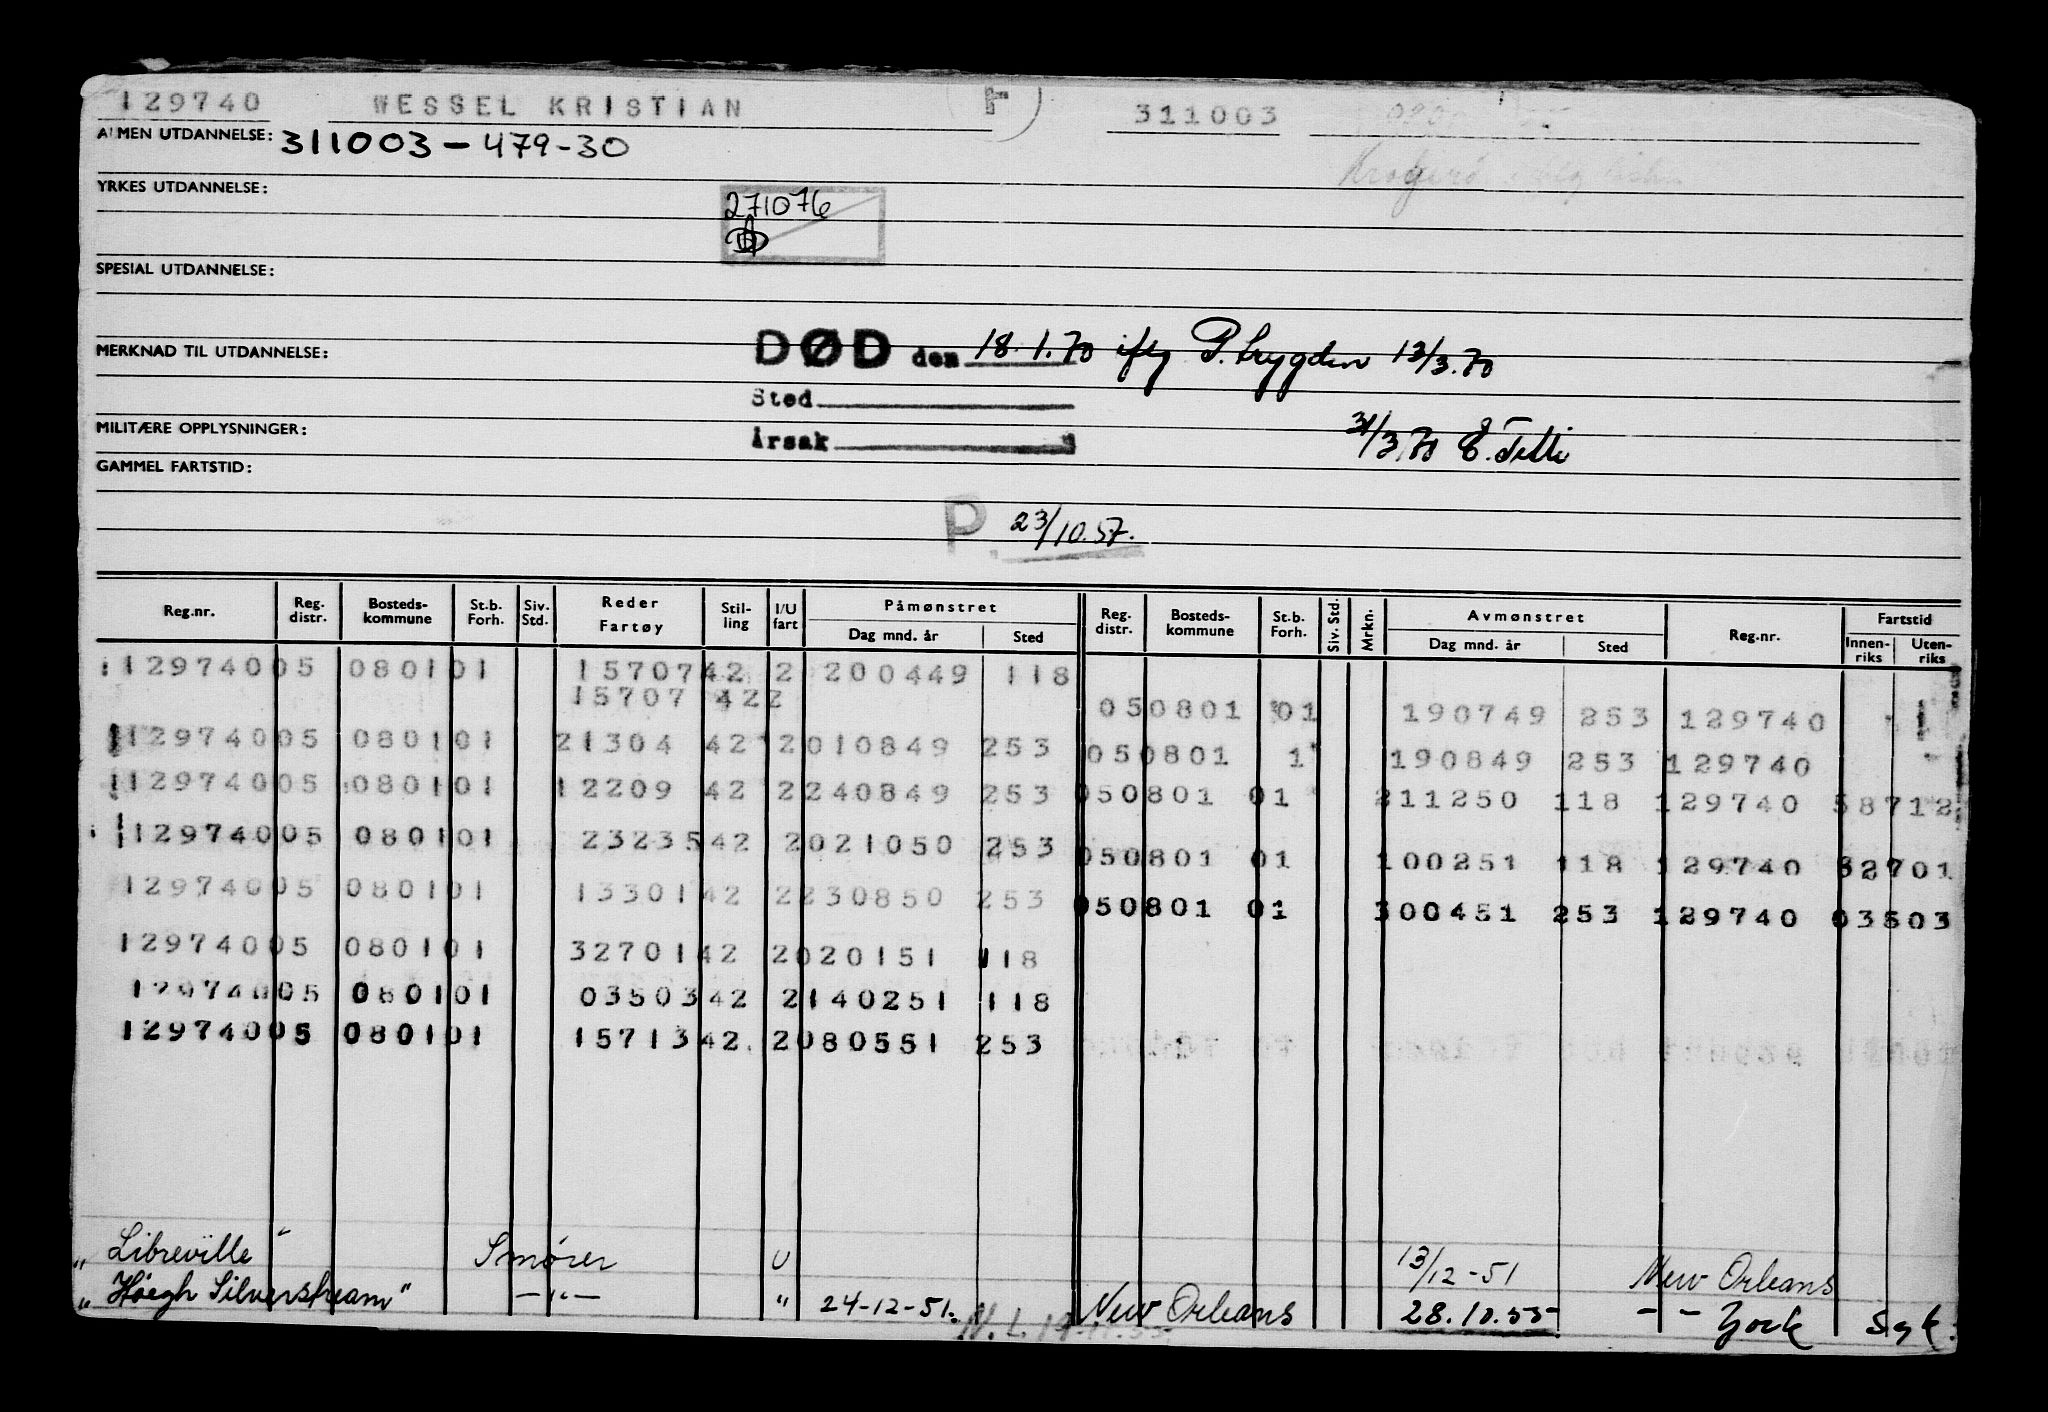 129740 WESSEL KRISTIAN F 311003
ALMEN UTDANNELSE: 311003-479-30
YRKES UTDANNELSE:
271076
SPESIAL UTDANNELSE:
MERKNAD TIL UTDANNELSE: DØD den 18.1.70 iflg P.trygden 13/3.70
Sted
MILITÆRE OPPLYSNINGER: Årsak 31/3.70
GAMMEL FARTSTID:
P. 23/10.57.
Reg.nr. Reg. distr. Bosteds-kommune St.b. Forh. Siv. Std. Reder Fartøy Stil-ling I/U fart Påmønstret Dag mnd. år Sted Reg. distr. Bosteds-kommune St.b. Forh. Siv. Std. Mrkn. Avmønstret Dag mnd. år Sted Reg.nr. Fartstid Innen-riks Uten-riks
12974005 080101 1570742 2 200449 118
15707 422 050801 01 190749 253 129740
12974005 080101 21304 42 2010849 253 050801 1 190849 253 129740
12974005 080101 12209 42 2240849 253 050801 01 211250 118 129740 58712
12974005 080101 2323542 2021050 253 050801 01 100251 118 129740 32701
12974005 080101 1330142 2230850 253 050801 01 300451 253 129740 03503
12974005 080101 3270142 2020151 118
12974005 080101 0350342 2140251 118
12974005 080101 1571342 2080551 253
"Libreville" Smører U 13/12-51 New Orleans
"Høegh Silverstream" -"- " 24-12-51. New Orleans 28.10.55 - - York Syk.